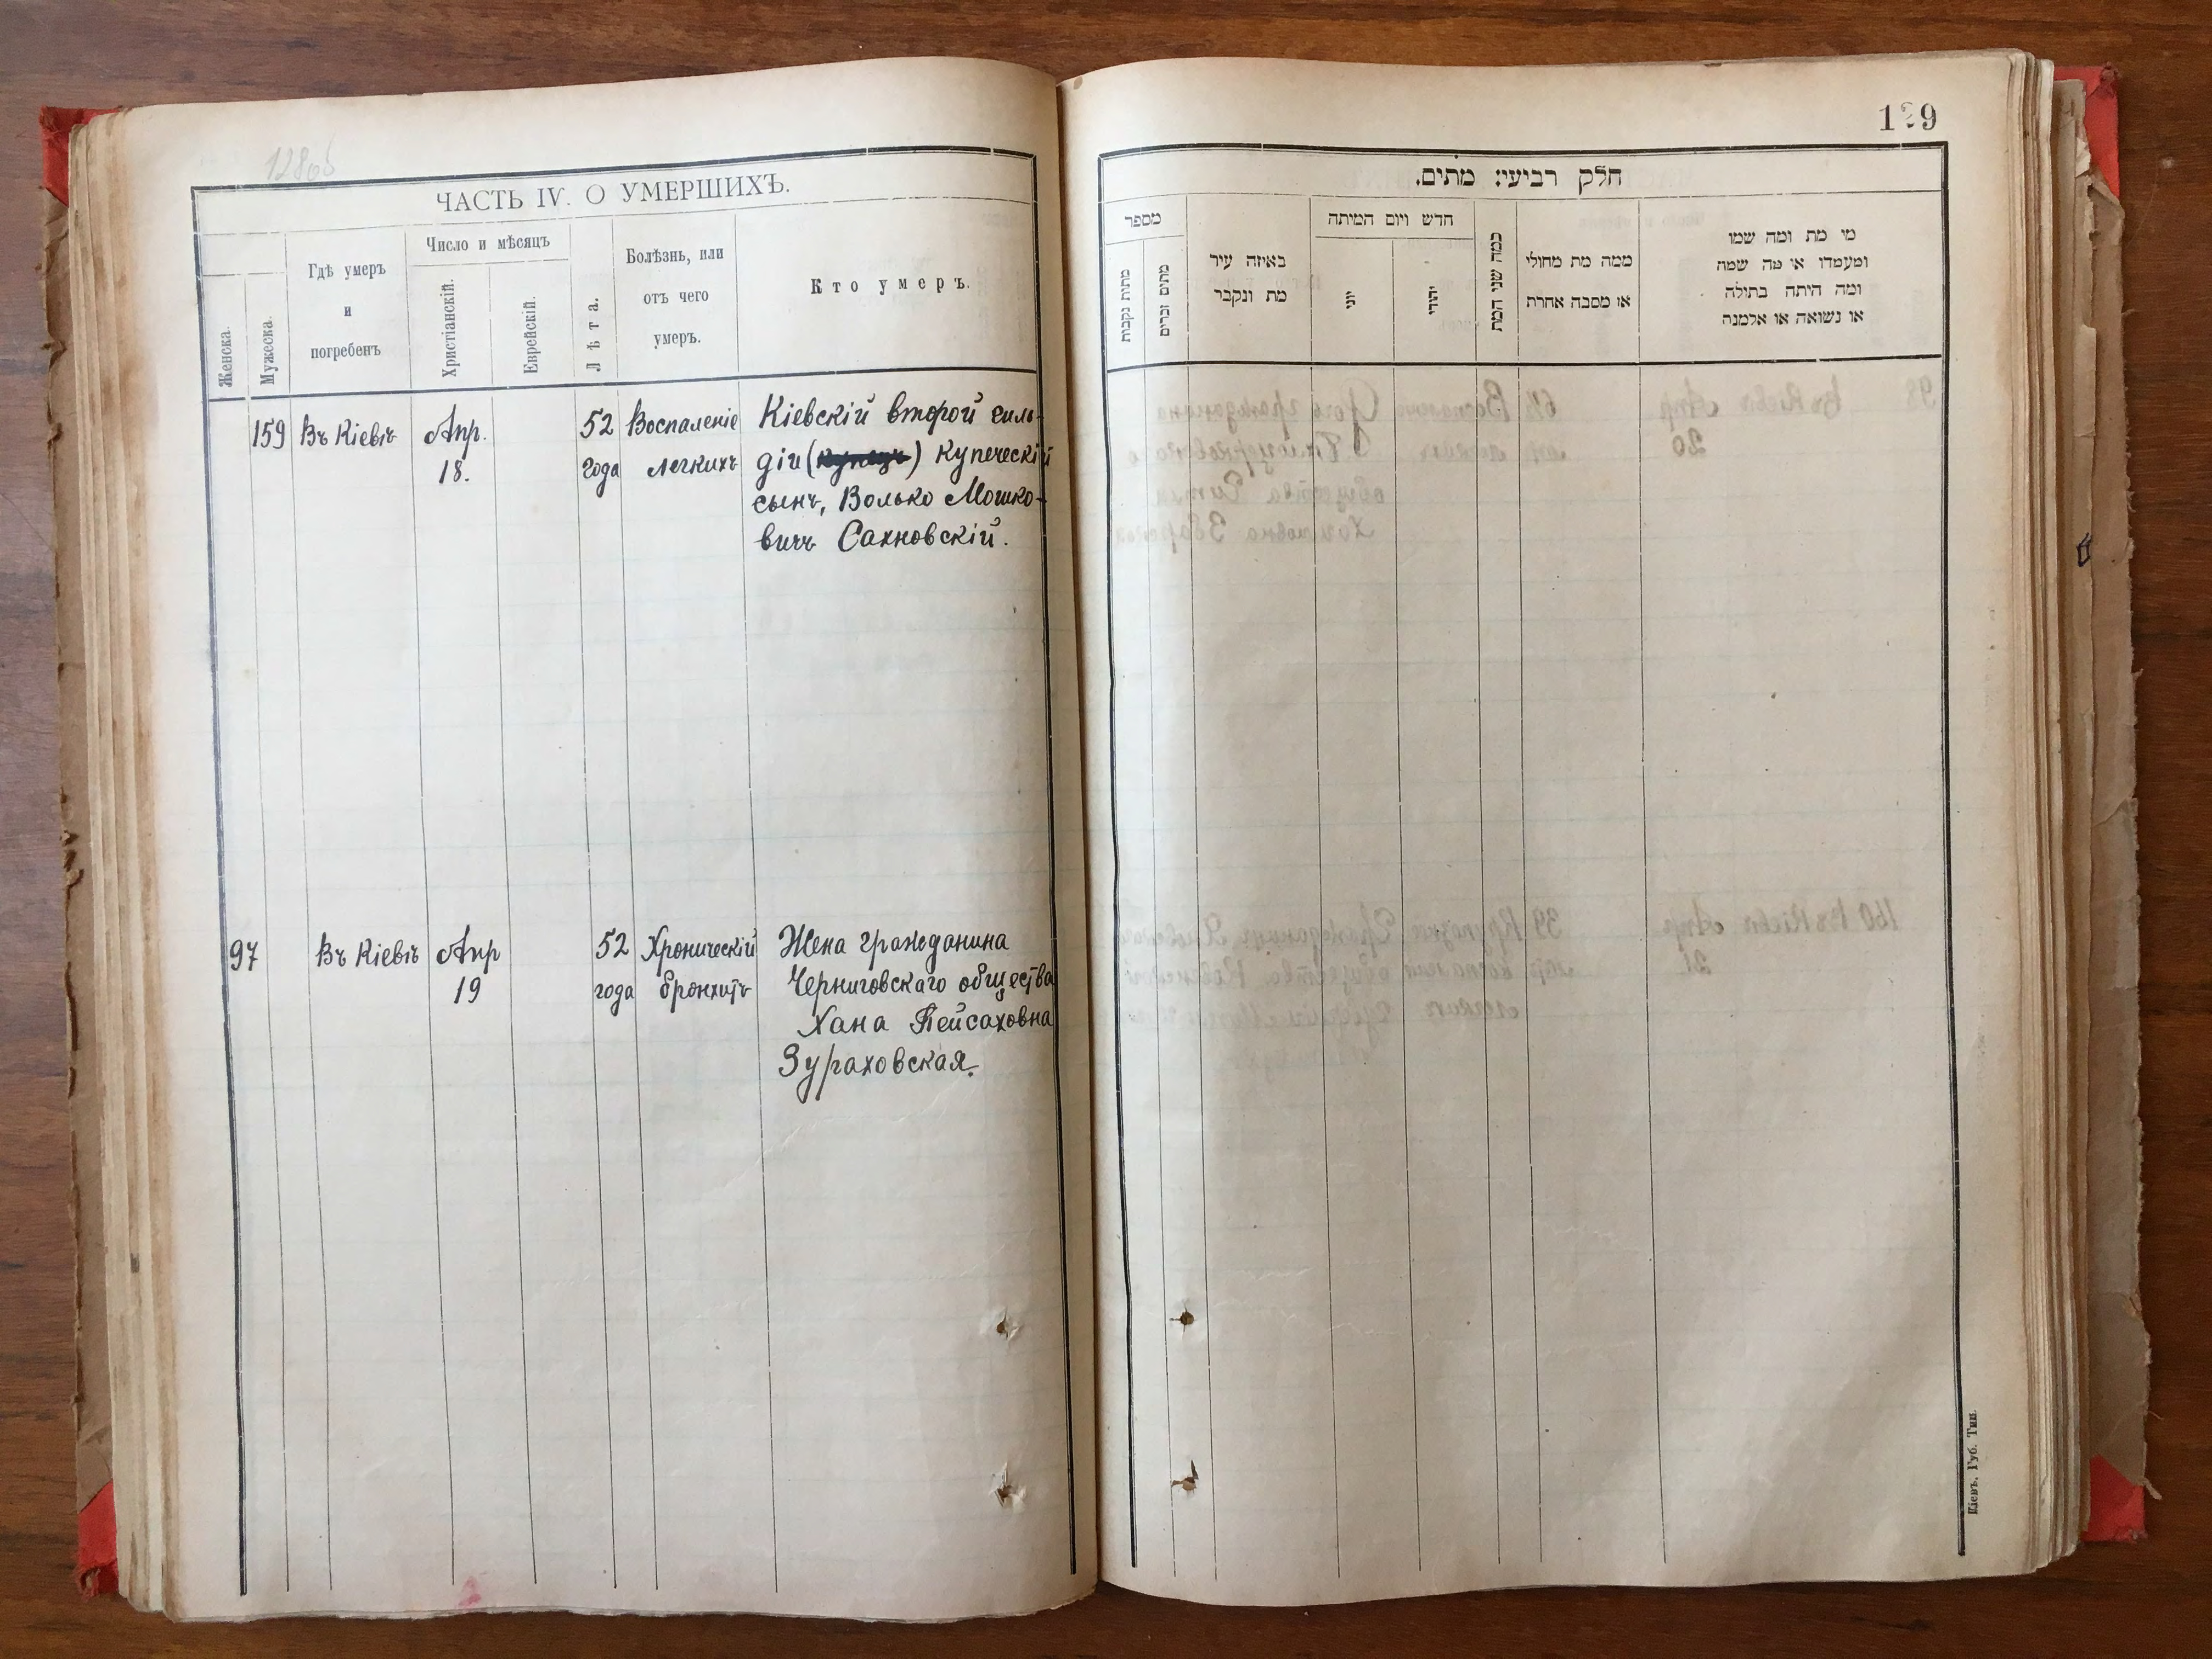 128об
ЧАСТЬ IV. О УМЕРШИХЪ.
Женска.
Мужеска.
Гдѣ умеръ
и
погребенъ
Число и мѣсяцъ
Христіанскій.
Еврейскій.
Лѣта.
Болѣзнь, или
отъ чего
умеръ.
Кто умеръ.
159 Въ Кіевѣ Апр. 52 Воспаленіе Кіевскій второй гиль-
18. года легкихъ діи (купецъ) купеческій
сынъ, Волько Мошко-
вичъ Сахновскій.
97 Въ Кіевѣ Апр 52 Хроническій Жена гражданина
19 года бронхитъ Черниговскаго общества
Хана Пейсаховна
Зураховская.
129
חלק רביעי: מתים.
מספר
מתות נקבות
מתים זכרים
באיזה עיר
מת ונקבר
חדש ויום המיתה
יוני
יהודי
כמה שני המת
ממה מת מחולי
או מסבה אחרת
מי מת ומה שמו
ומעמדו או מה שמה
ומה היתה בתולה
או נשואה או אלמנה
Кіевъ, Губ. Тип.